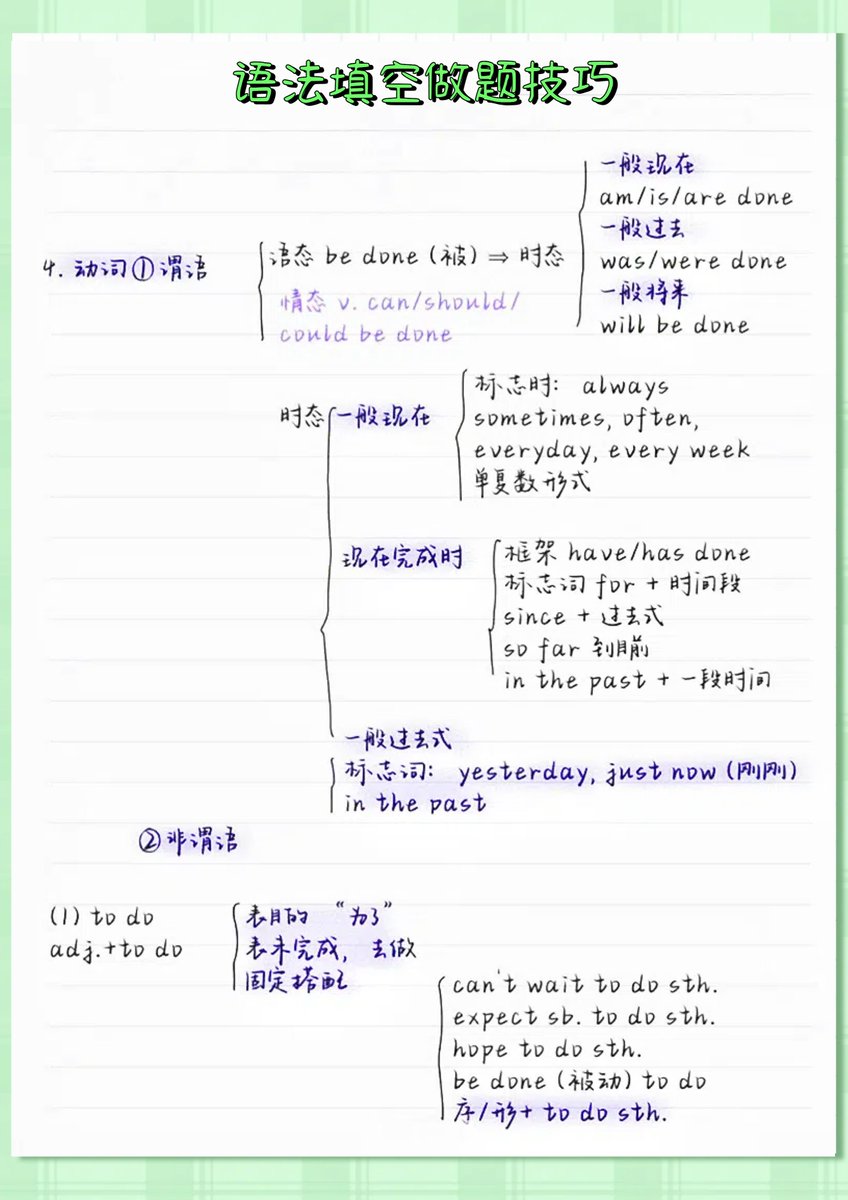 语法填空做题技巧
4. 动词①谓语
语态 be done (被) ⇒ 时态
情态 v. can/should/
could be done
一般现在
am/is/are done
一般过去
was/were done
一般将来
will be done
时态
一般现在
标志时: always
sometimes, often,
everyday, every week
单复数形式
现在完成时
框架 have/has done
标志词 for + 时间段
since + 过去式
so far 到目前
in the past + 一段时间
一般过去式
标志词: yesterday, just now (刚刚)
in the past
②非谓语
(1) to do
adj.+to do
表目的 “为了”
表未完成, 去做
固定搭配
can't wait to do sth.
expect sb. to do sth.
hope to do sth.
be done (被动) to do
序/形+ to do sth.